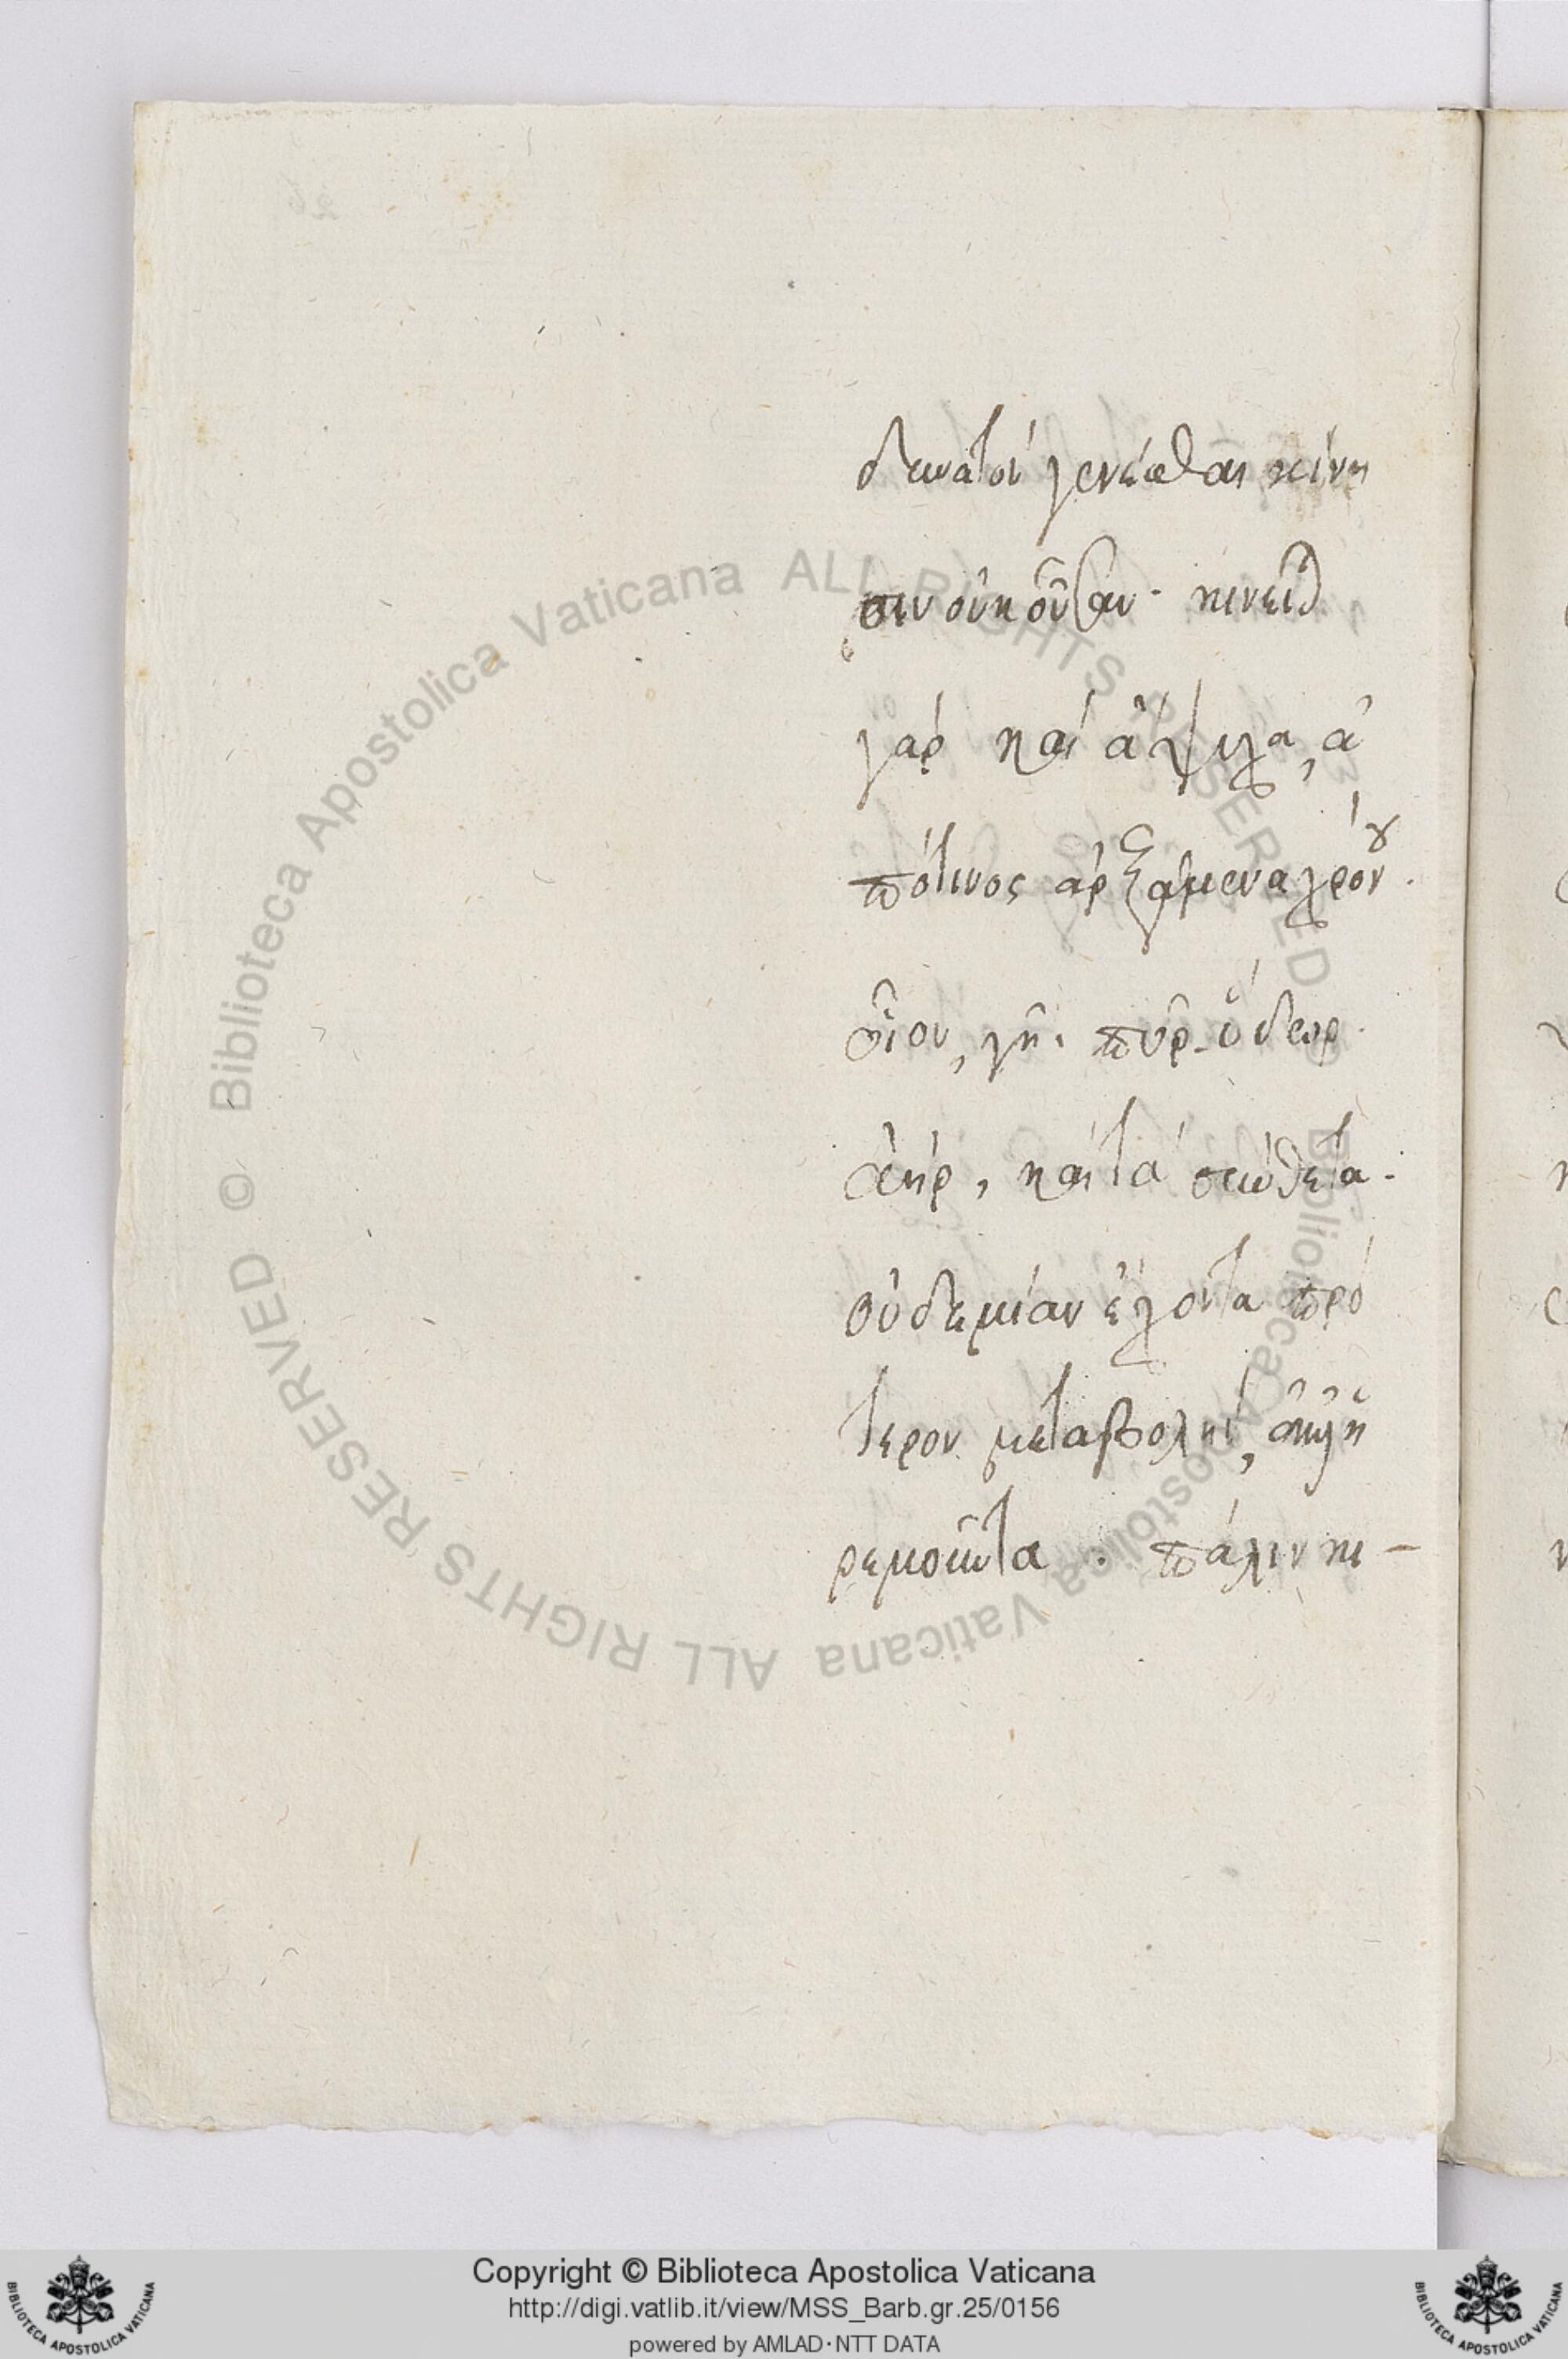 δυνατὸν γενέσθαι κίνη
σιν οὐκ οὖσαν· κινεῖται
γὰρ καὶ ἄψυχα, ἀ
πό τινος ἀρξάμενα χρόνου.
οἷον, γῆ. πῦρ. ὕδωρ.
ἀὴρ, καὶ τὰ σύνθετα.
οὐδεμίαν ἔχοντα πρό
τερον μεταβολὴν, ἀλλ' ἠ
ρεμοῦντα. πάλιν κι-
Biblioteca Apostolica Vaticana ALL RIGHTS RESERVED ©
Biblioteca Apostolica Vaticana ALL RIGHTS RESERVED ©
Copyright © Biblioteca Apostolica Vaticana
http://digi.vatlib.it/view/MSS_Barb.gr.25/0156
powered by AMLAD·NTT DATA
BIBLIOTECA APOSTOLICA VATICANA
BIBLIOTECA APOSTOLICA VATICANA